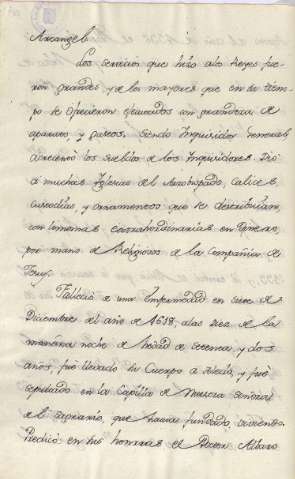 Arcangel.
Los servicios que hizo a los Reyes fue
ron grandes, y de los mayores que en su tiem
po se ofrecieron ejecutados con grandeza de
aparatos, y gastos. Siendo Inquisidor General
acrecentó los sueldos de los Inquisidores. Dió
a muchas Iglesias del Arzobispado, Calices,
custodias, y ornamentos que se distribuian,
con limosnas extraordinarias en
por mano de Religiosos de la Compañia de
Jesus.
Fallecio de una enfermedad en siete de
Diciembre del año de 1618, a las tres de la
mañana noche de hedad de setenta y dos
años, fue llevado su Cuerpo a Toledo, y fué
sepultado en la Capilla de Nuestra Señora
del Sagrario, que havia fundado,
Predicó en sus honras el Doctor Alvaro